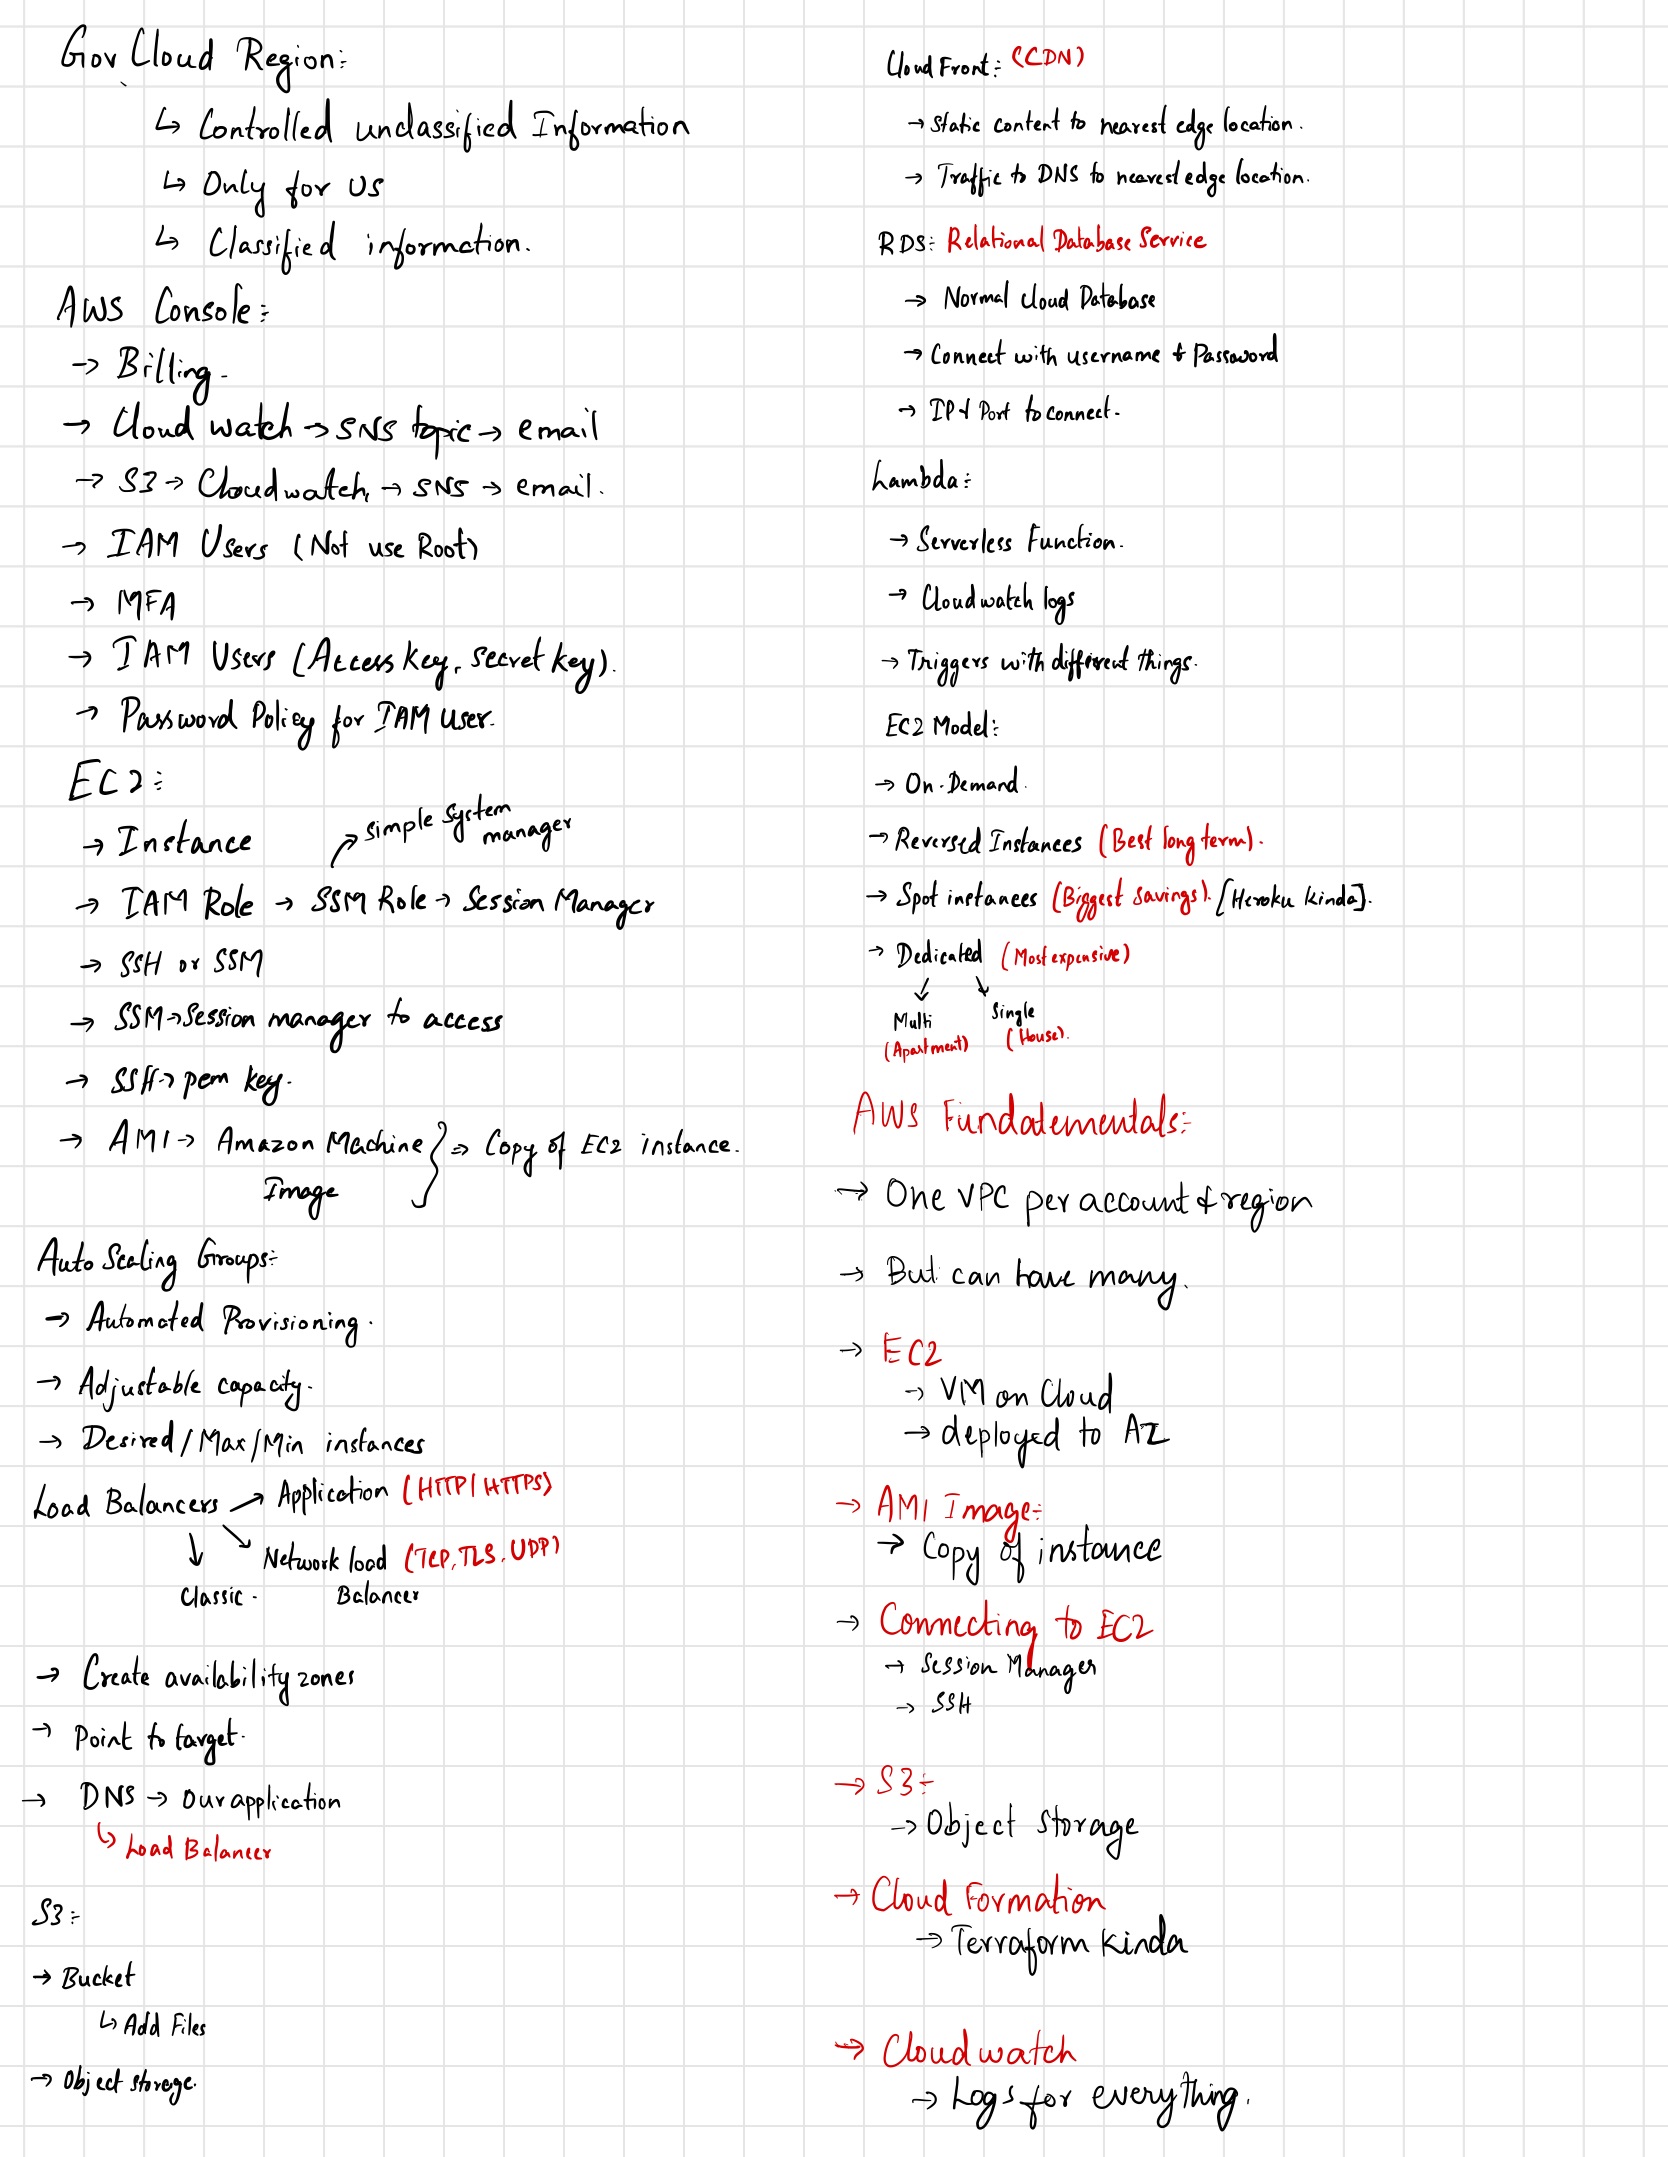 Gov Cloud Region:
↳ Controlled unclassified Information
↳ Only for US
↳ Classified information.
AWS Console:
→ Billing.
→ Cloud watch → SNS topic → email
→ S3 → Cloudwatch → SNS → email.
→ IAM Users (Not use Root)
→ MFA
→ IAM Users (Access Key, Secret key).
→ Password Policy for IAM user.
EC2:
→ Instance
simple System manager
→ IAM Role → SSM Role → Session Manager
→ SSH or SSM
→ SSM → Session manager to access
→ SSH → pem key.
→ AMI → Amazon Machine Image } ⇒ Copy of EC2 instance.
Auto Scaling Groups:
→ Automated Provisioning.
→ Adjustable capacity.
→ Desired/Max/Min instances
Load Balancers → Application (HTTP/HTTPS)
Network load Balancer (TCP, TLS, UDP)
Classic.
→ Create availability zones
→ Point to target.
→ DNS → Our application
↳ Load Balancer
S3:
→ Bucket
↳ Add Files
→ Object storage.
Cloud Front: (CDN)
→ Static content to nearest edge location.
→ Traffic to DNS to nearest edge location.
RDS: Relational Database Service
→ Normal Cloud Database
→ Connect with username & Password
→ IP & Port to connect.
Lambda:
→ Serverless Function.
→ Cloudwatch logs
→ Triggers with different things.
EC2 Model:
→ On-Demand.
→ Reversed Instances (Best long term).
→ Spot instances (Biggest Savings). [Heroku kinda].
→ Dedicated (Most expensive)
Multi (Apartment)
Single (House).
AWS Fundatementals:
→ One VPC per account & region
→ But can have many.
→ EC2
→ VM on Cloud
→ deployed to AZ
→ AMI Image:
→ Copy of instance
→ Connecting to EC2
→ Session Manager
→ SSH
→ S3:
→ Object Storage
→ Cloud Formation
→ Terraform Kinda
→ Cloudwatch
→ Logs for everything.